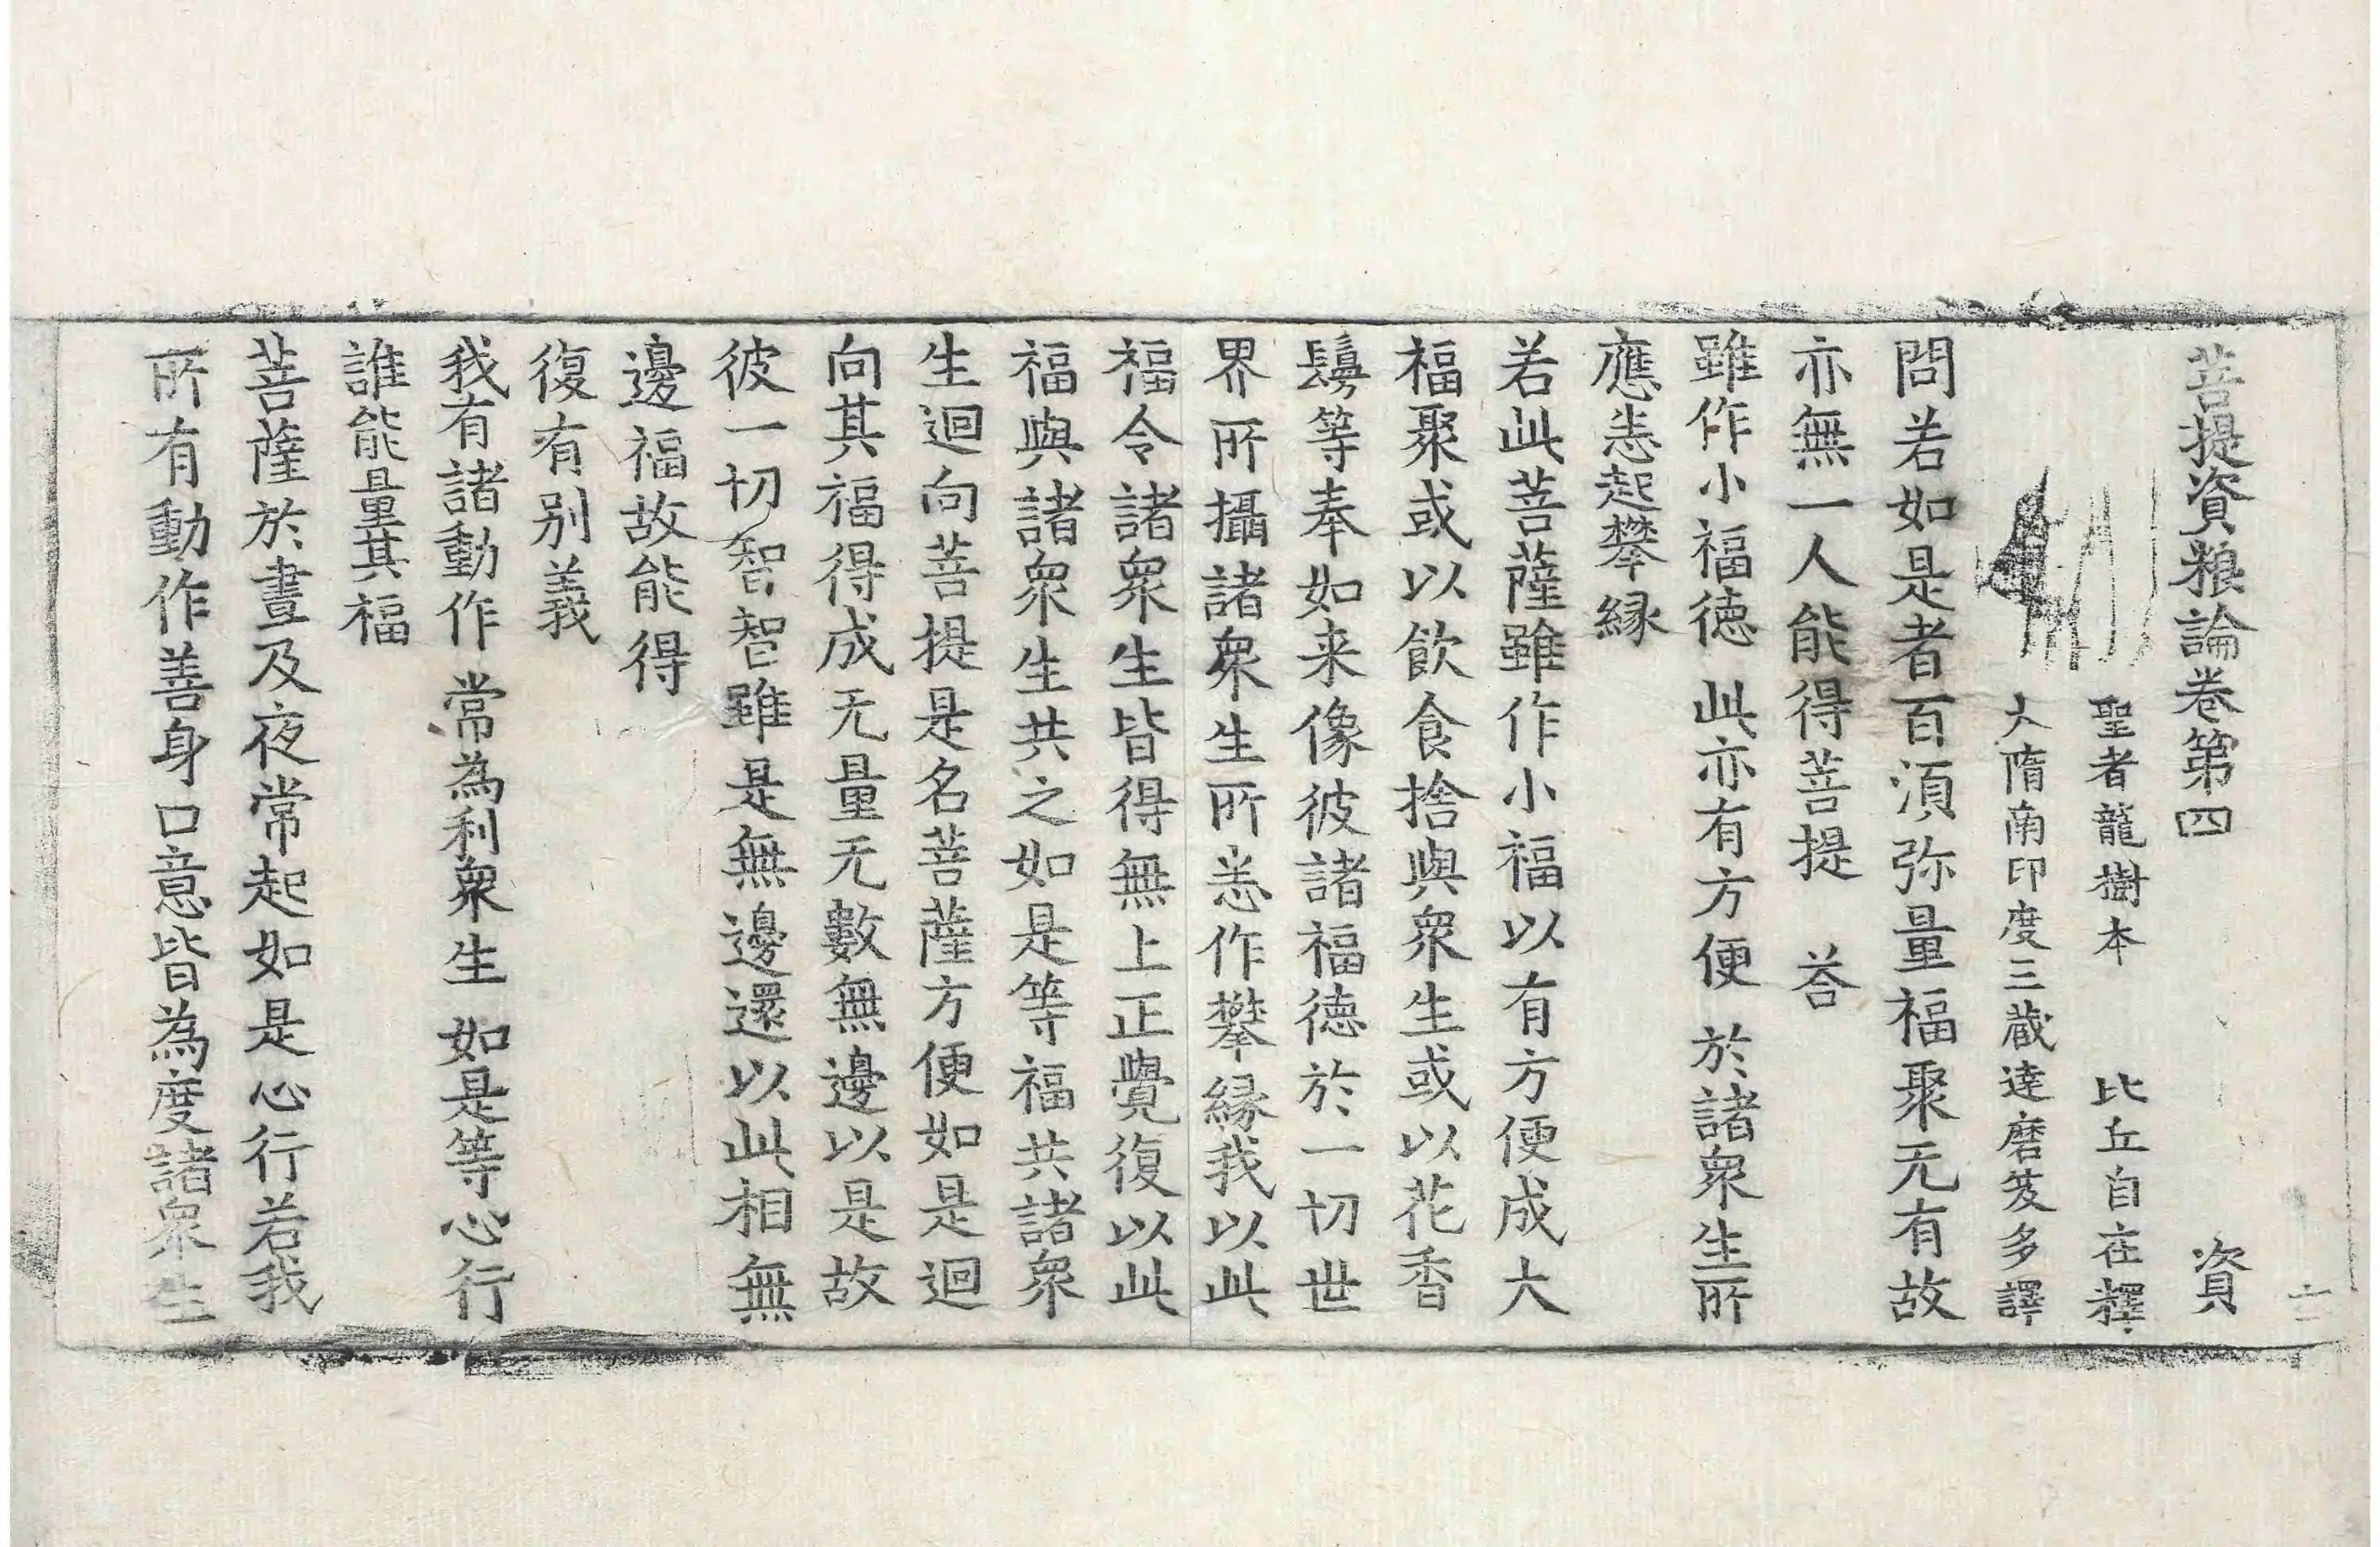 菩提資粮論卷第四　資
聖者龍樹本　比丘自在釋
大隋南印度三藏達磨笈多譯
問若如是者百湏弥量福聚无有故
亦無一人能得菩提　荅
雖作小福德　此亦有方便　於諸衆生所
應恙起攀縁
若此菩薩雖作小福以有方便成大
福聚或以飲食捨與衆生或以花香
鬘等奉如来像彼諸福德於一切世
界所攝諸衆生所恙作攀縁我以此
福令諸衆生皆得無上正覺復以此
福與諸衆生共之如是等福共諸衆
生迴向菩提是名菩薩方便如是迴
向其福得成无量无數無邊以是故
彼一切智智雖是無邊還以此相無
邊福故能得
復有別義
我有諸動作　常為利衆生　如是等心行
誰能量其福
菩薩於晝及夜常起如是心行若我
所有動作善身口意皆為度諸衆生